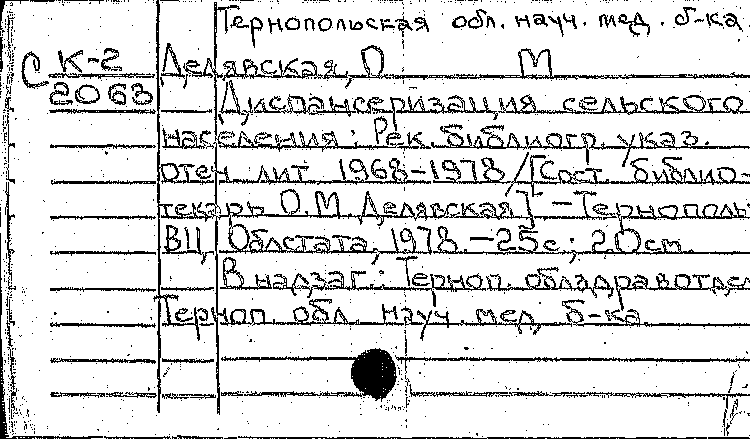 Тернопольская обл. науч. мед. б-ка
С К-2 Делявская, О М
2063 Диспансеризация сельского
населения: Рек. библиогр. указ.
отеч лит 1968-1978 /[Сост. библио-
текарь О.М. Делявская] - Тернополь:
ВЦ Облстата, 1978. - 25 с.; 20 см.
В надзаг.: Терноп. облздравотдел
Терноп. обл. науч. мед. б-ка.